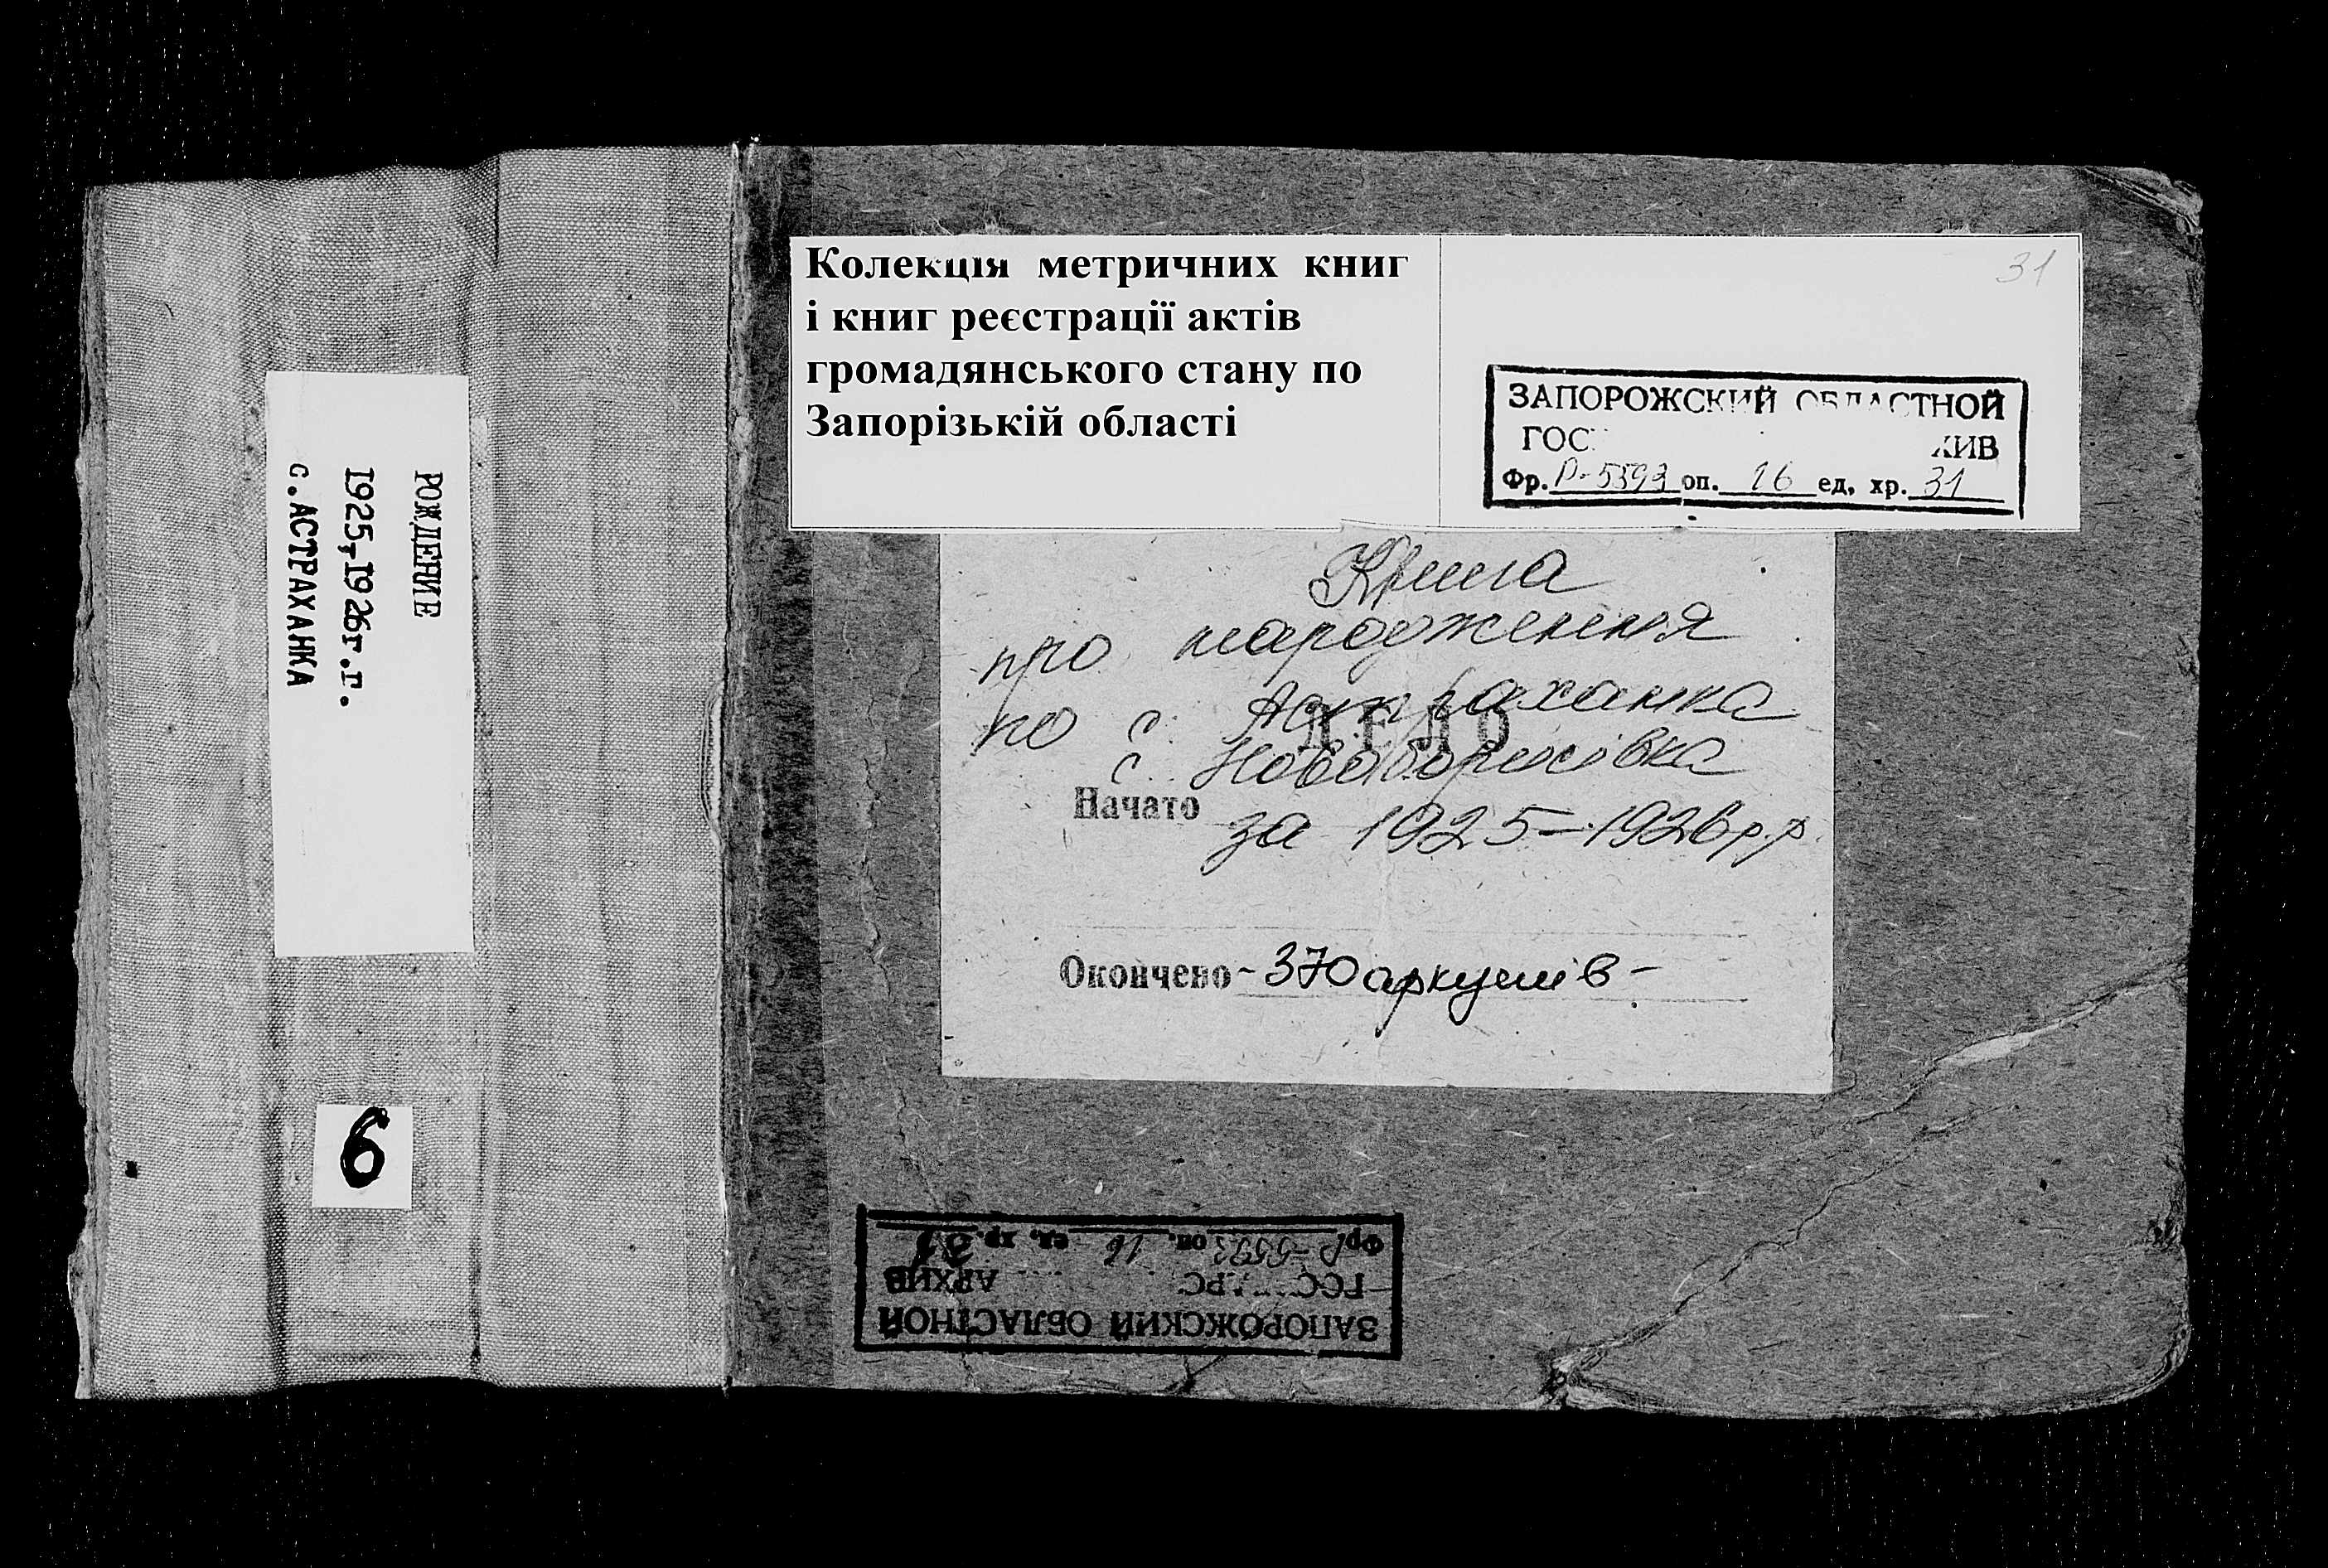 РОЖДЕНИЕ
1925,-1926г.г.
с.АСТРАХАНКА
6
Колекція метричних книг
і книг реєстрації актів
громадянського стану по
Запорізькій області
31
ЗАПОРОЖСКИЙ ОБЛАСТНОЙ
ГОС ХИВ
Фр. Р-5593 оп. 16 ед, хр. 31
Книга
про народження
по с. Астраханка
ДЕЛО
с. Новоборисівка
Начато
за 1925-1926 р.р.
Окончено - 370 аркушів -
ЗАПОРОЖСКИЙ ОБЛАСТНОЙ
АРХИВ
Фр Р-5593 оп. 16 ед. хр. 31